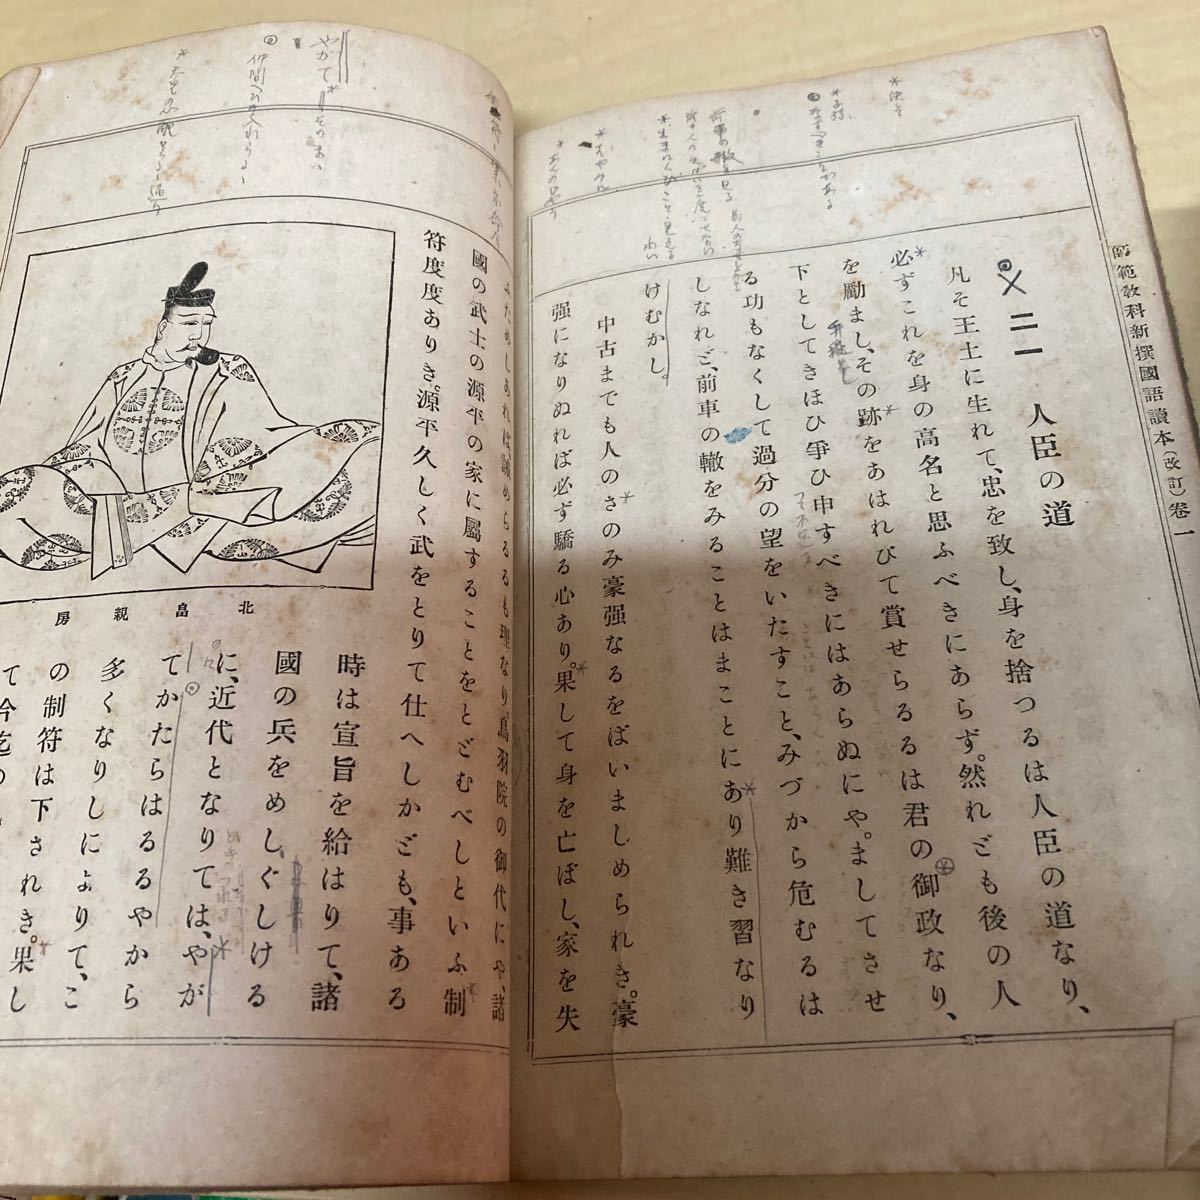 師範教科新撰國語讀本(改訂)卷一
二一 人臣の道
凡そ王土に生れて、忠を致し、身を捨つるは人臣の道なり、
必ずこれを身の高名と思ふべきにあらず。然れども後の人
を勵まし、その跡をあはれびて賞せらるるは君の御政なり、
下としてきほひ爭ひ申すべきにはあらぬにや。ましてさせ
る功もなくして過分の望をいたすこと、みづから危むるは
しなれど、前車の轍をみることはまことにあり難き習なり
けむかし。
中古までも人のさのみ豪强なるをばいましめられき。豪
强になりぬれば必ず驕る心あり。果して身を亡ぼし、家を失
ふためしあれば誡めらるるも理なり。鳥羽院の御代にや、諸
國の武士の源平の家に屬することをとどむべしといふ制
符度度ありき。源平久しく武をとりて仕へしかども、事ある
時は宣旨を給はりて、諸
國の兵をめしぐしける
に、近代となりては、やが
てかたらはるるやから
多くなりしによりて、こ
の制符は下されき。果し
て今迄の
北畠親房
やがて
そのまゝ